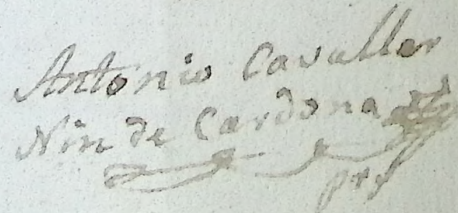 Antonio Cavaller
Nin de Cardona